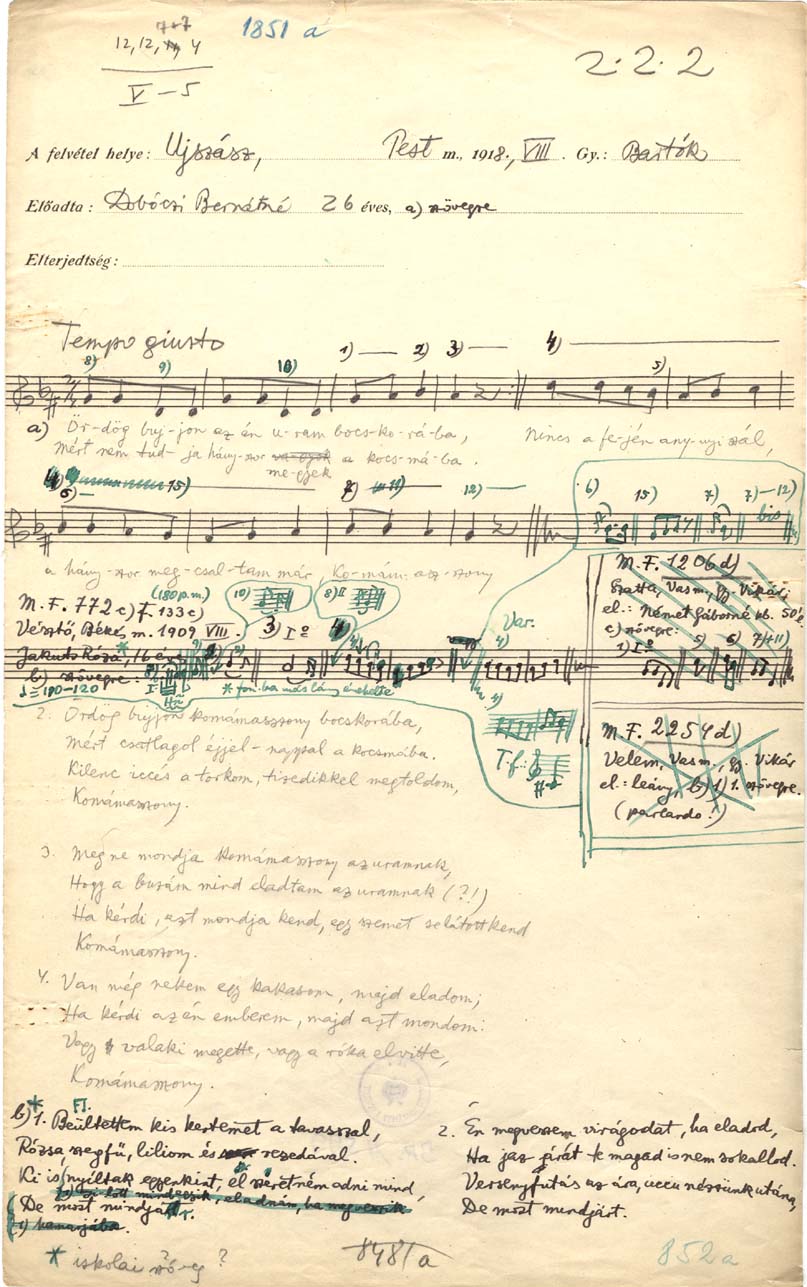 7+7
12, 12, 11, 4
V—5
1851 a
2. 2. 2
A felvétel helye: Ujszász, Pest m., 1918., VIII. Gy.: Bartók
Előadta: Dobóczi Bernátné 26 éves, a) szövegre
Elterjedtség:
Tempo giusto
1) 2) 3) 4)
8) 9) 10) 5)
a) Ör-dög buj-jon az én u-ram bocs-ko-rá-ba, Nincs a fe-jén any-nyi szál,
Mért nem tud-ja hány-szor a kocs-má-ba.
me-gyek
15) 12) 6) 15) 7) 7)—12)
bis
a hány-szor meg-csal-tam már, Ko-mám-asz-szony
M.F. 772 c) F. 133 c) (180 p.m.) 10) 8) II
Vésztő, Békés m. 1909 VIII. 3) Iº 4)
Jakuts Róza, 16 éves
b) szövegre:
♩=110–120
* fon-ba más lány énekelte
Var.
T.f.:
M.F. 1206 d)
Szatta, Vasm., gy. Vikár
el.: Német Gáborné kb. 50 é.
c) szövegre:
1) Iº 5) 6) 7)+11)
M.F. 2254 d)
Velem, Vasm., gy. Vikár
el.: leány, b) 1) 1. szövegre.
(parlando!)
2. Ördög bujjon komámasszony bocskorába,
Mért csatlagol éjjel-nappal a kocsmába.
Kilenc iccés a torkom, tizedikkel megtoldom,
Komámasszony.
3. Meg ne mondja komámasszony az uramnak,
Hogy a buzám mind eladtam az uramnak (?!)
Ha kérdi, azt mondja kend, egy szemet se látott kend
Komámasszony.
4. Van még nekem egy kakasom, majd eladom;
Ha kérdi az én emberem, majd azt mondom:
Vagy valaki megette, vagy a róka elvitte,
Komámasszony.
b) * FI.
1. Beültettem kis kertemet a tavasszal,
Rózsa szegfű, liliom és rezedával.
Ki is nyíltak egyenkint, el szeretném adni mind,
De most mindjárt.
2. Én megveszem virágodat, ha eladod,
Ha jaz járát te magad is nem sokallod.
Versenyfutás az ára, uccu nézzünk utána,
De most mindjárt.
* iskolai szöveg ?
848/a
852a